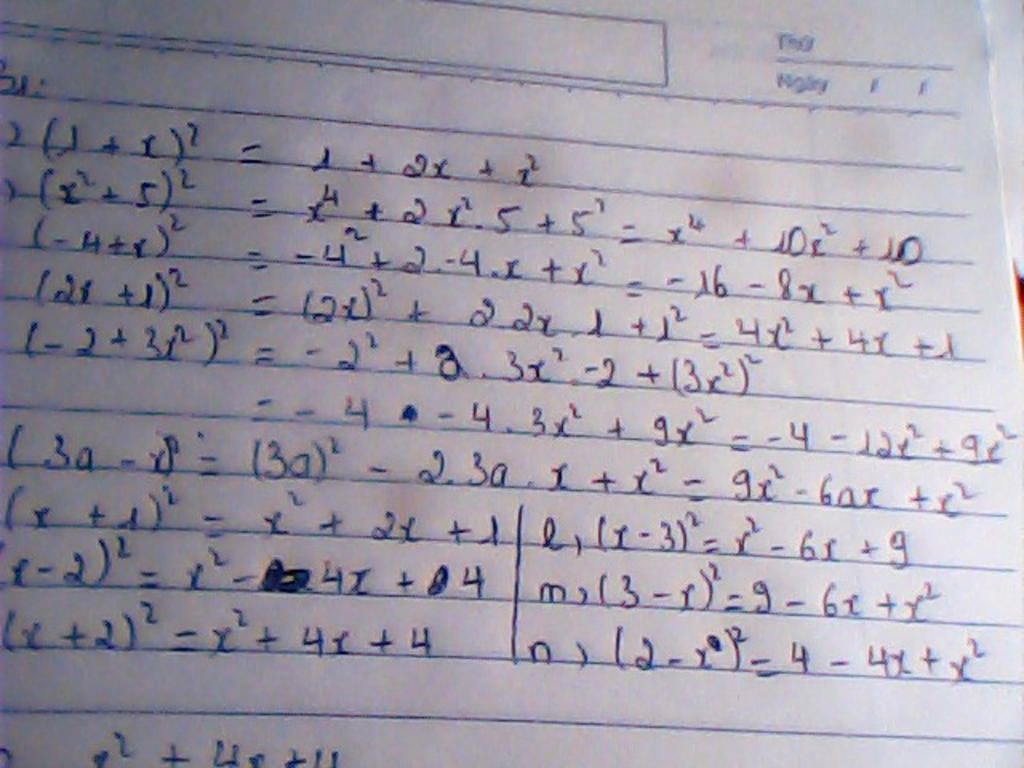 Thứ
Ngày / /
B1:
(1 + x)² = 1 + 2x + x²
(x² + 5)² = x⁴ + 2x².5 + 5² = x⁴ + 10x² + 10
(-4+x)² = -4² + 2.-4.x + x² = -16 - 8x + x²
(2x + 1)² = (2x)² + 2.2x.1 + 1² = 4x² + 4x + 1
(-2 + 3x²)² = -2² + 2.3x².-2 + (3x²)²
= -4 - 4.3x² + 9x² = -4 - 12x² + 9x²
(3a - x)² = (3a)² - 2.3a.x + x² = 9x² - 6ax + x²
(x + 1)² = x² + 2x + 1 l, (x-3)² = x² - 6x + 9
(x-2)² = x² - 4x + 4 m, (3-x)² = 9 - 6x + x²
(x+2)² = x² + 4x + 4 n, (2-x)² = 4 - 4x + x²
x² + 4x + 4